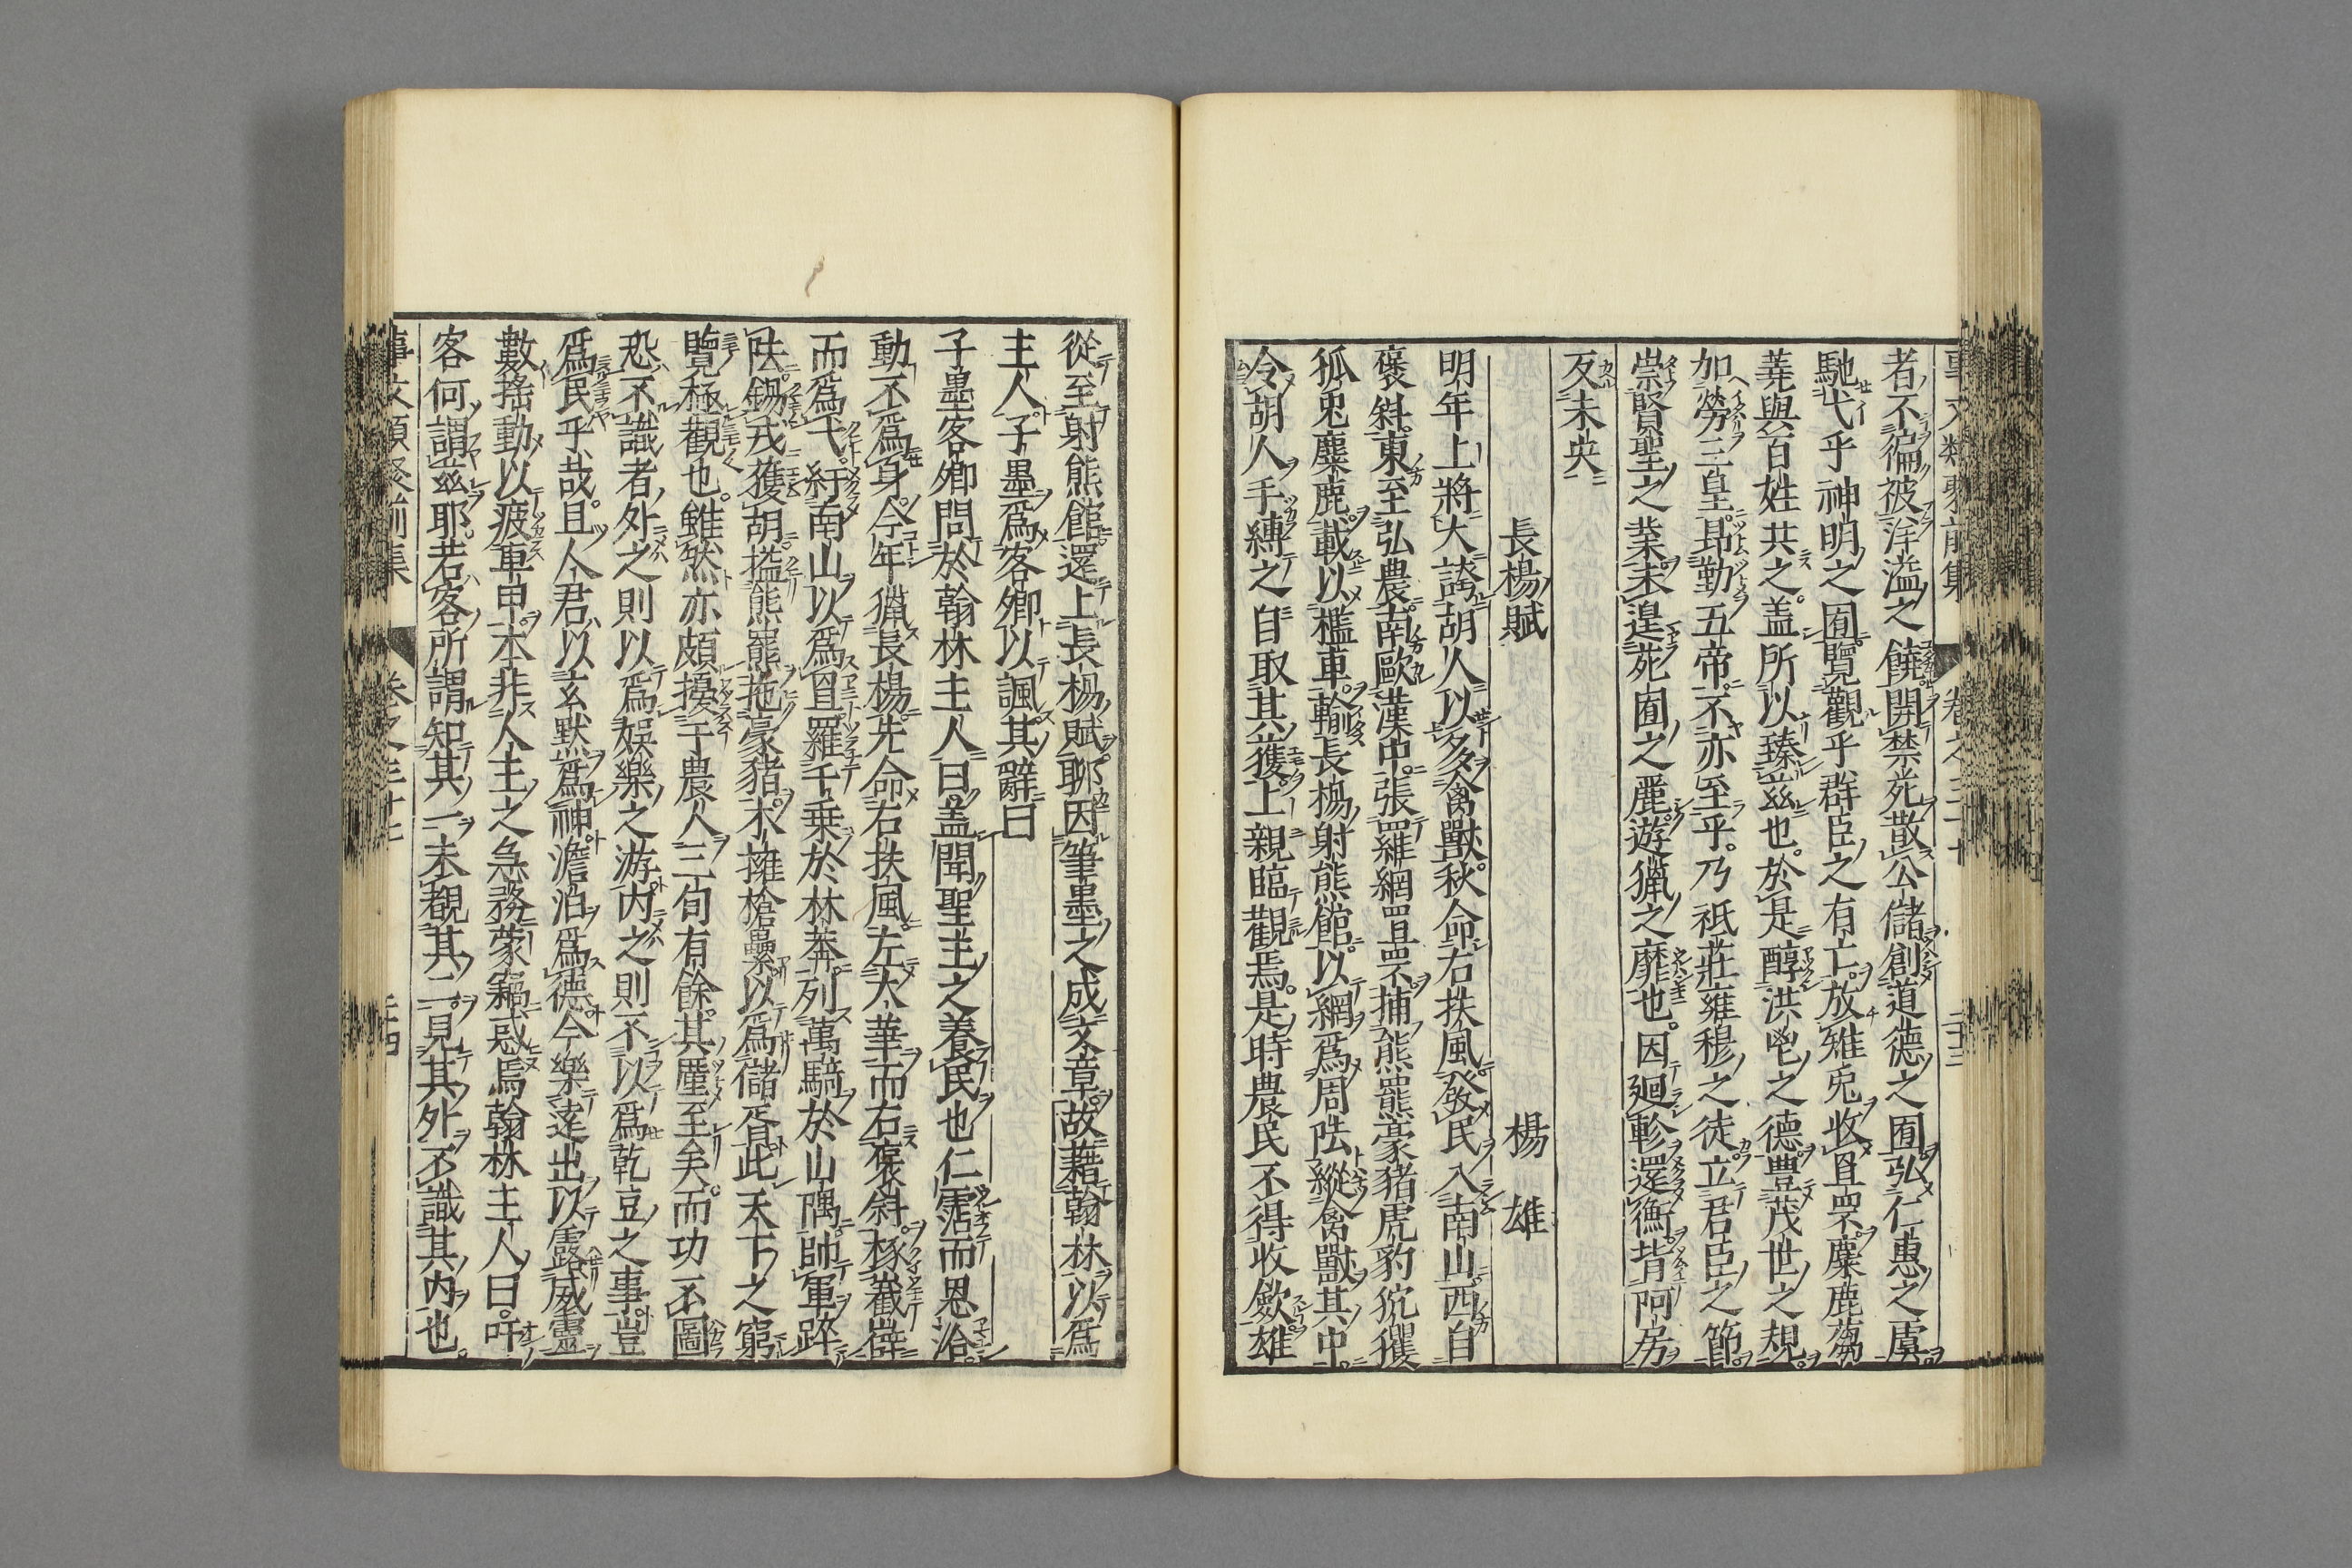 者不徧被洋溢之饒開禁苑散公儲創道德之囿弘仁惠之虞
馳弋乎神明之囿覽觀乎群臣之有亡放雉兎收罝罘麋鹿蒭
蕘與百姓共之盖所以臻兹也於是醇洪鬯之德豊茂世之規
加勞三皇勗勤五帝不亦至乎乃祇莊雍穆之徒立君臣之節
崇賢聖之業未遑苑囿之麗遊獵之靡也因廻軫還衡背阿房
反未央
長楊賦 楊雄
明年上將大誇胡人以多禽獸秋命右扶風發民入南山西自
褒斜東至弘農南歐漢中張羅網罝罘捕熊羆豪豬虎豹狖玃
狐兎麋鹿載以檻車輸長楊射熊館以網爲周阹縱禽獸其中
令胡人手縛之自取其獲上親臨觀焉是時農民不得收歛雄
從至射熊館還上長楊賦聊因筆墨之成文章故藉翰林以爲
主人子墨爲客卿以諷其辭曰
子墨客卿問於翰林主人曰盖聞聖主之養民也仁霑而恩洽
動不爲身今年獵長楊先命右扶風左大華而右褒斜椓嶻嶭
而爲弋紆南山以爲罝羅千乗於林莾列萬騎於山隅帥軍踤
阹錫戎獲胡搤熊羆拖豪豬木擁槍纍以爲儲胥此天下之窮
覽極觀也雖然亦頗擾于農人三旬有餘其廑至矣而功不圖
恐不識者外之則以爲娯樂之游内之則不以爲乾豆之事豈
爲民乎哉且人君以玄默爲神澹泊爲德今樂逺出以露威靈
數揺動以疲車甲本非人主之急務蒙竊惑焉翰林主人曰吁
客何謂兹耶若客所謂知其一未覩其二見其外不識其内也